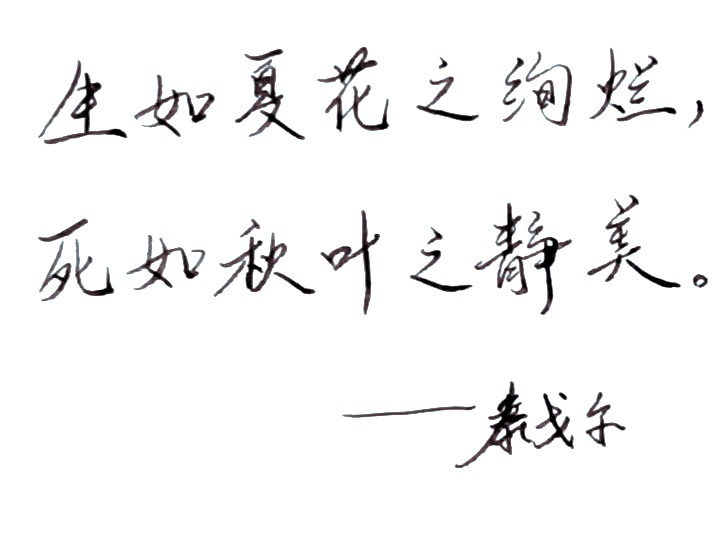 生如夏花之绚烂，
死如秋叶之静美。
——泰戈尔